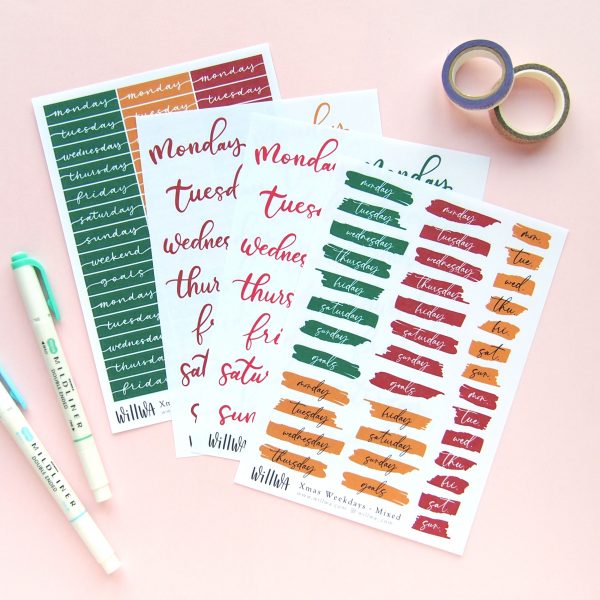 monday monday monday
tuesday tuesday tuesday
wednesday
thursday
friday
saturday
sunday
weekend
goals
monday
tuesday
wednesday
thursday
friday
WillWa
Monday
Tuesd
Wednes
thur
f
sat
Monday
Tues
Wednes
thurs
fri
satu
sun
WillW
Monday
monday
tuesday
wednesday
thursday
friday
saturday
sunday
goals
monday
tuesday
wednesday
thursday
monday
tuesday
wednesday
thursday
friday
saturday
sunday
goals
friday
saturday
sunday
goals
mon.
tue.
wed.
thu.
fri.
sat.
sun.
mon.
tue.
wed.
thu.
fri.
sat.
sun.
WillWa Xmas Weekdays - Mixed
www.willwa.com
MILDLINER
DOUBLE ENDED
MILDLINER
DOUBLE ENDED